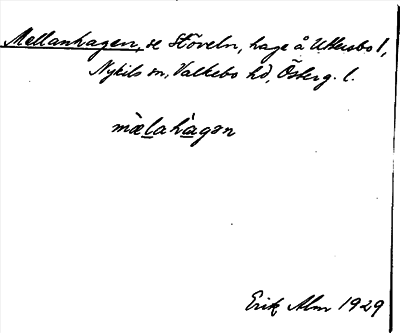 Mellanhagen, se Stöveln, hage å Uttersbo 1,
Nykils sn, Valkebo hd, Österg. l.
mæ̀lahàgən
Erik Alm 1929